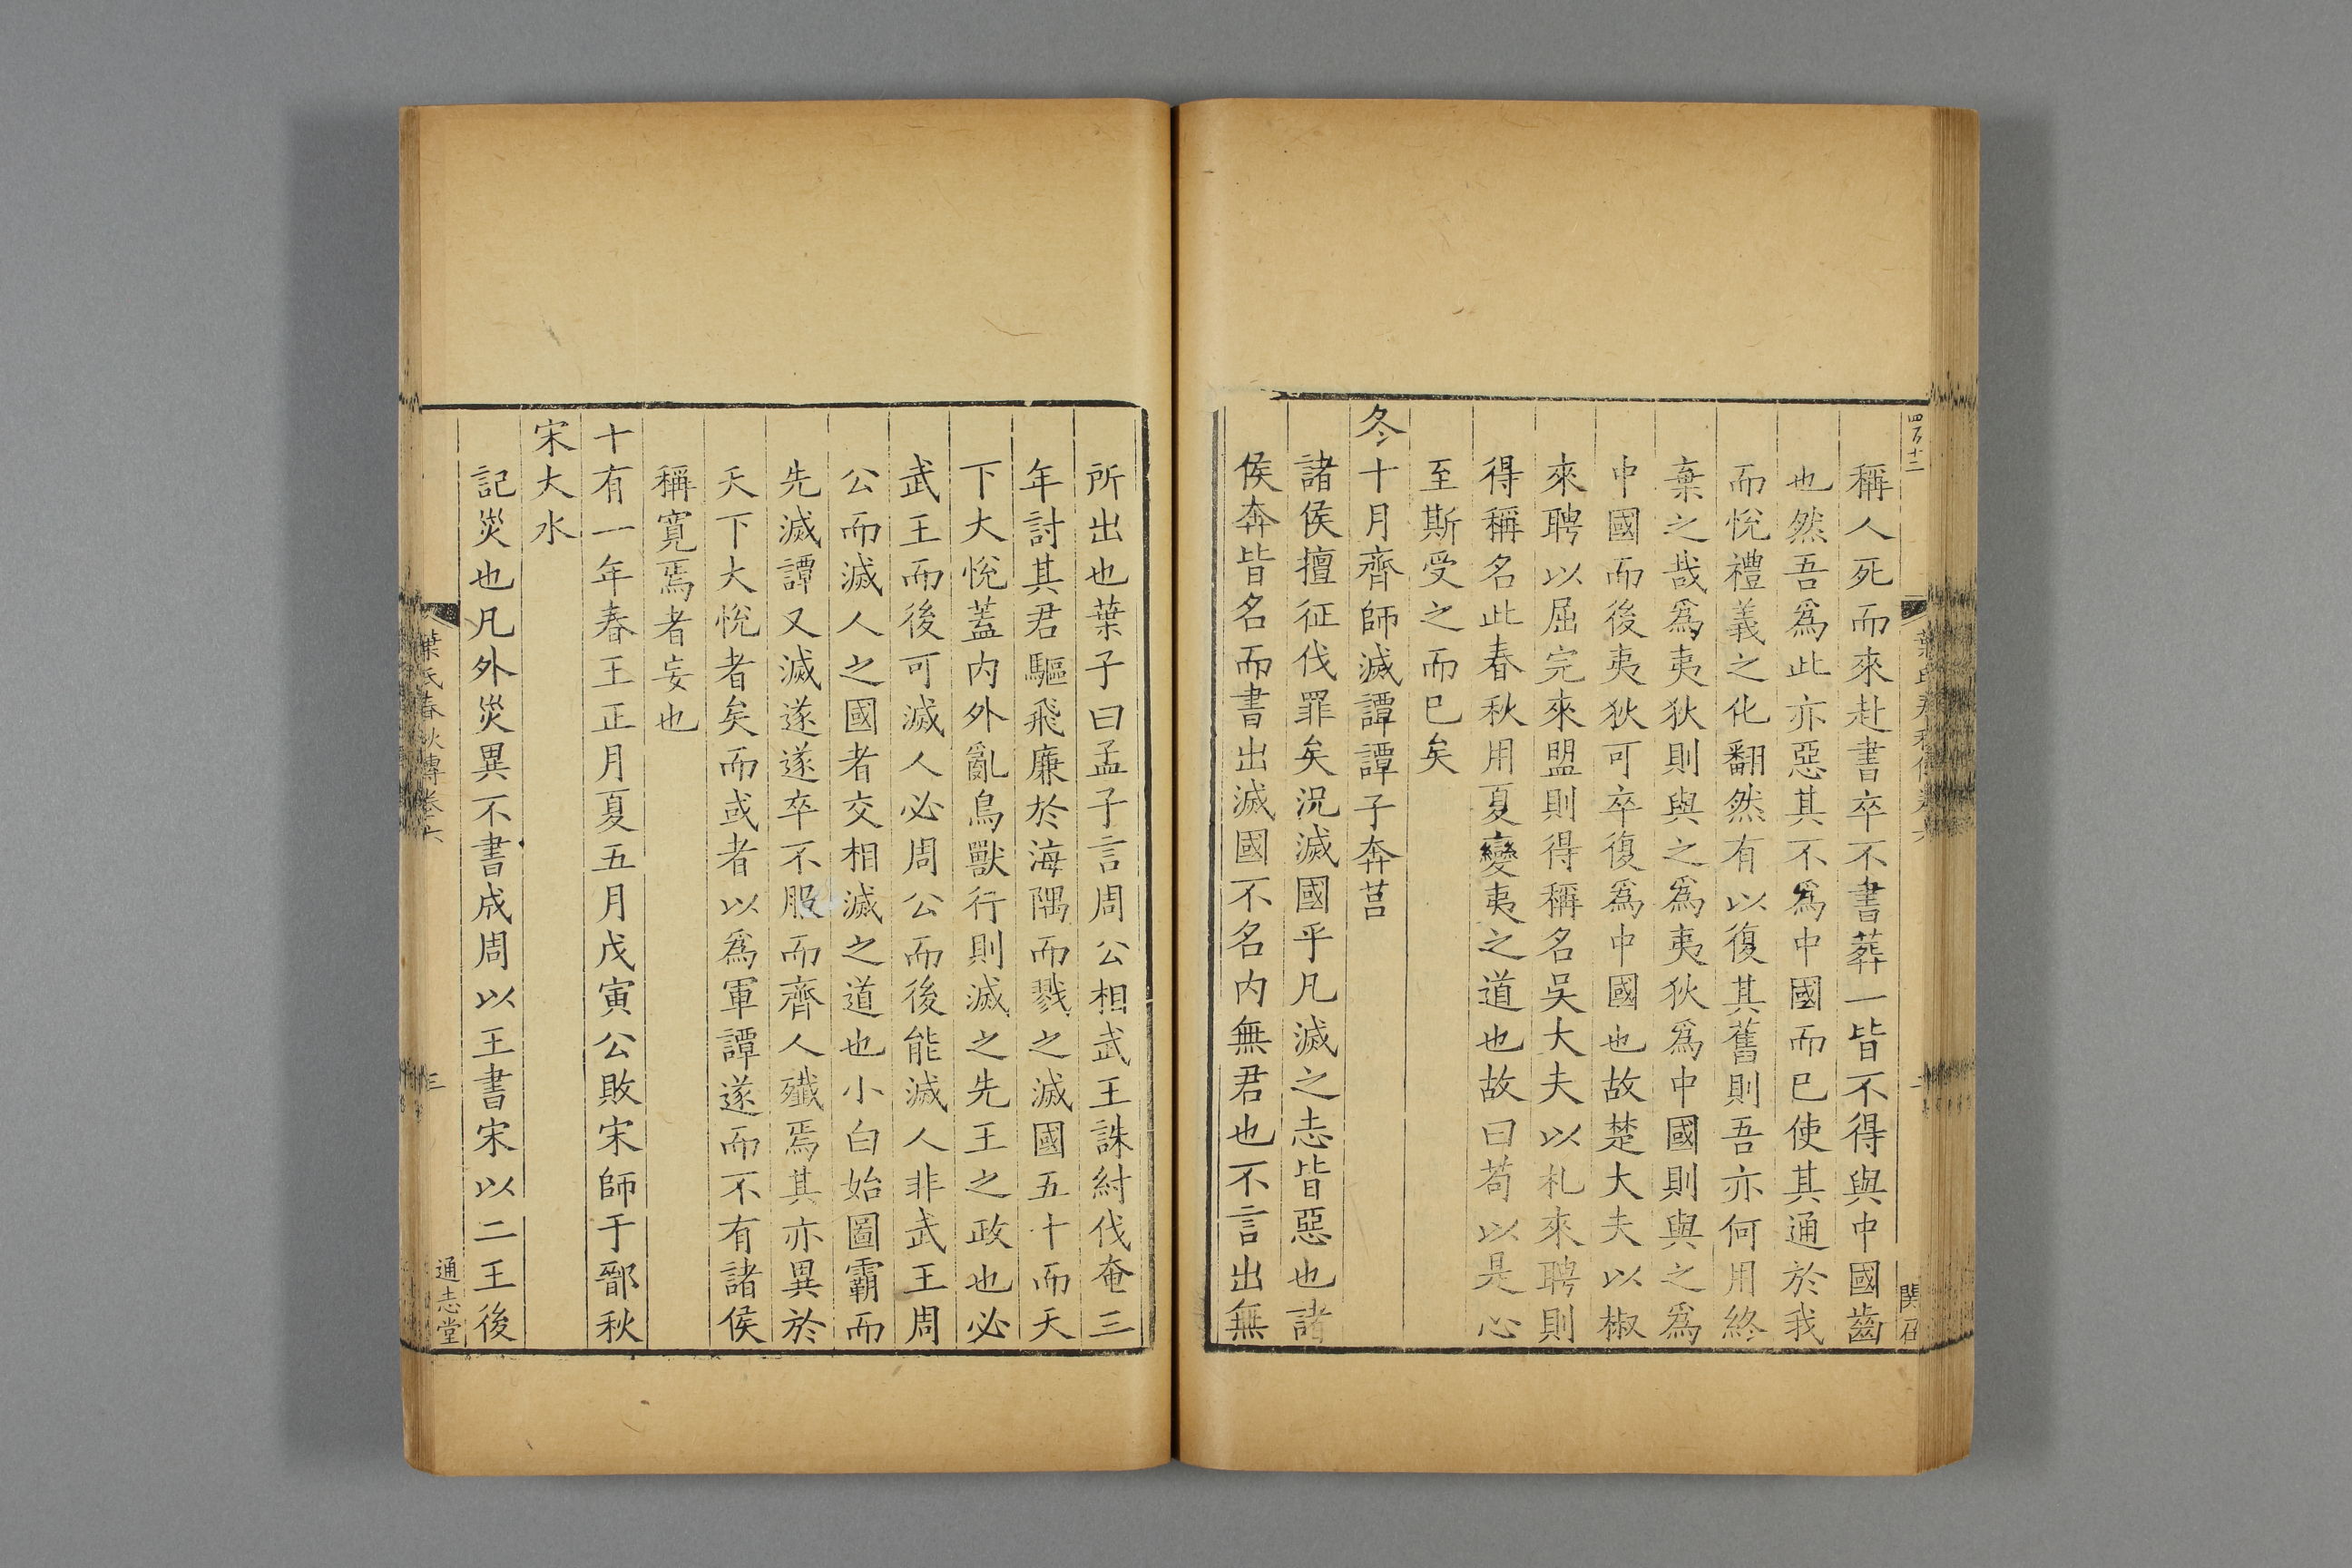 四百十二
関召
稱人死而來赴書卒不書葬一皆不得與中國齒
也然吾爲此亦惡其不爲中國而已使其通於我
而悅禮義之化翻然有以復其舊則吾亦何用終
棄之哉爲夷狄則與之爲夷狄爲中國則與之爲
中國而後夷狄可卒復爲中國也故楚大夫以椒
來聘以屈完來盟則得稱名吳大夫以札來聘則
得稱名此春秋用夏變夷之道也故曰苟以是心
至斯受之而已矣
冬十月齊師滅譚譚子奔莒
諸侯擅征伐罪矣況滅國乎凡滅之志皆惡也諸
侯奔皆名而書出滅國不名內無君也不言出無
所出也葉子曰孟子言周公相武王誅紂伐奄三
年討其君驅飛廉於海隅而戮之滅國五十而天
下大悅蓋內外亂鳥獸行則滅之先王之政也必
武王而後可滅人必周公而後能滅人非武王周
公而滅人之國者交相滅之道也小白始圖霸而
先滅譚又滅遂遂卒不服而齊人殲焉其亦異於
天下大悅者矣而或者以爲軍譚遂而不有諸侯
稱寬焉者妄也
十有一年春王正月夏五月戊寅公敗宋師于鄑秋
宋大水
記災也凡外災異不書成周以王書宋以二王後
葉氏春秋傳卷六
三
通志堂